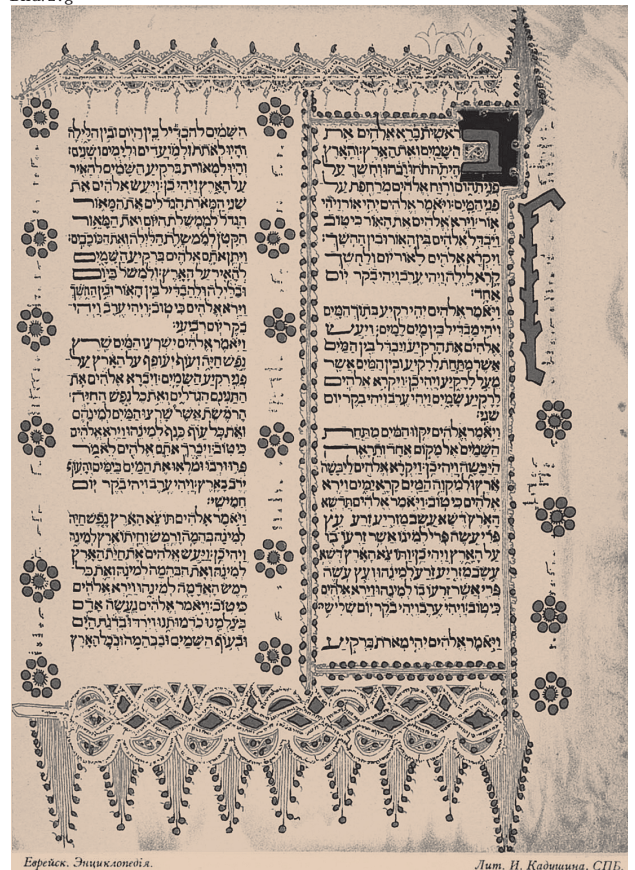 בראשית ברא אלהים את
השמים ואת הארץ: והארץ
היתה תהו ובהו וחשך על
פני תהום ורוח אלהים מרחפת על
פני המים: ויאמר אלהים יהי אור ויהי
אור: וירא אלהים את האור כי טוב
ויבדל אלהים בין האור ובין החשך:
ויקרא אלהים לאור יום ולחשך
קרא לילה ויהי ערב ויהי בקר יום
אחד:
ויאמר אלהים יהי רקיע בתוך המים
ויהי מבדיל בין מים למים: ויעש
אלהים את הרקיע ויבדל בין המים
אשר מתחת לרקיע ובין המים אשר
מעל לרקיע ויהי כן: ויקרא אלהים
לרקיע שמים ויהי ערב ויהי בקר יום
שני:
ויאמר אלהים יקוו המים מתחת
השמים אל מקום אחד ותראה
היבשה ויהי כן: ויקרא אלהים ליבשה
ארץ ולמקוה המים קרא ימים וירא
אלהים כי טוב: ויאמר אלהים תדשא
הארץ דשא עשב מזריע זרע עץ
פרי עשה פרי למינו אשר זרעו בו
על הארץ ויהי כן: ותוצא הארץ דשא
עשב מזריע זרע למינהו ועץ עשה
פרי אשר זרעו בו למינהו וירא אלהים
כי טוב: ויהי ערב ויהי בקר יום שלישי:
ויאמר אלהים יהי מארת ברקיע
השמים להבדיל בין היום ובין הלילה
והיו לאתת ולמועדים ולימים ושנים:
והיו למאורת ברקיע השמים להאיר
על הארץ ויהי כן: ויעש אלהים את
שני המארת הגדלים את המאור
הגדל לממשלת היום ואת המאור
הקטן לממשלת הלילה ואת הכוכבים:
ויתן אתם אלהים ברקיע השמים
להאיר על הארץ: ולמשל ביום
ובלילה ולהבדיל בין האור ובין החשך
וירא אלהים כי טוב: ויהי ערב ויהי
בקר יום רביעי:
ויאמר אלהים ישרצו המים שרץ
נפש חיה ועוף יעופף על הארץ על
פני רקיע השמים: ויברא אלהים את
התנינם הגדלים ואת כל נפש החיה
הרמשת אשר שרצו המים למינהם
ואת כל עוף כנף למינהו וירא אלהים
כי טוב: ויברך אתם אלהים לאמר
פרו ורבו ומלאו את המים בימים והעוף
ירב בארץ: ויהי ערב ויהי בקר יום
חמישי:
ויאמר אלהים תוצא הארץ נפש חיה
למינה בהמה ורמש וחיתו ארץ למינה
ויהי כן: ויעש אלהים את חית הארץ
למינה ואת הבהמה למינה ואת כל
רמש האדמה למינהו וירא אלהים
כי טוב: ויאמר אלהים נעשה אדם
בצלמנו כדמותנו וירדו בדגת הים
ובעוף השמים ובבהמה ובכל הארץ
Еврейск. Энциклопедія.
Лит. И. Кадушина, СПБ.